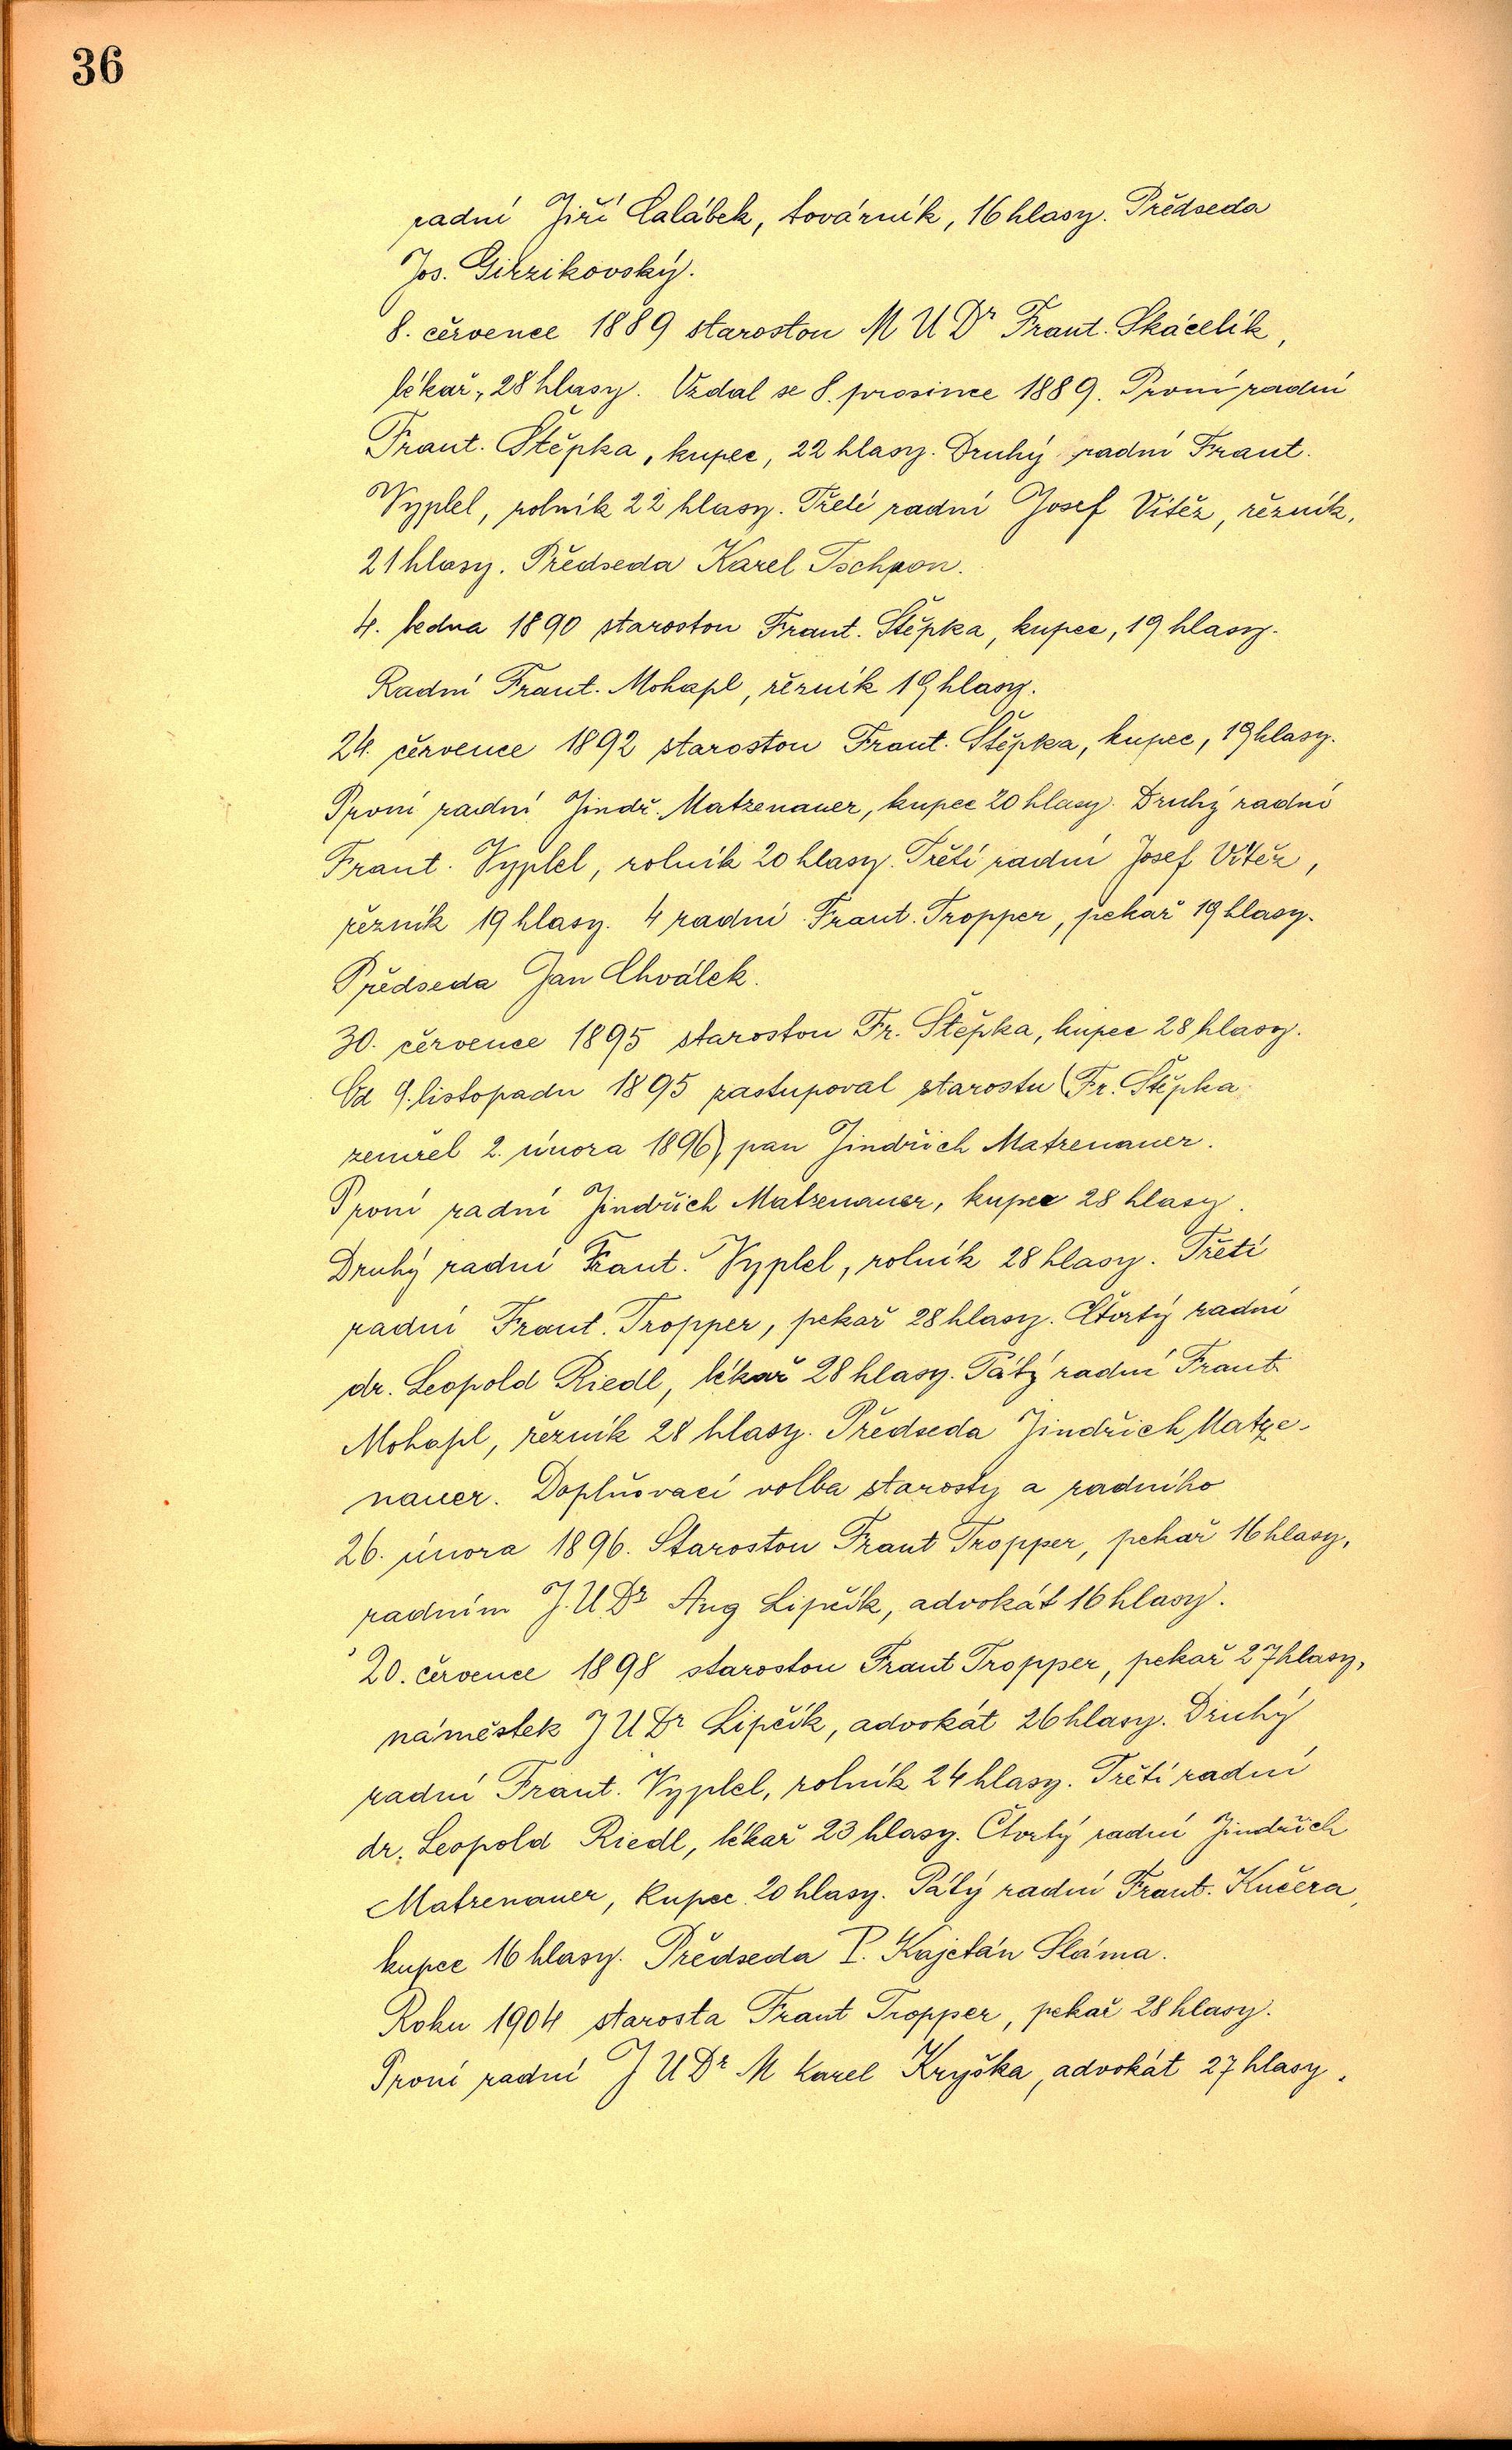 36
radní Jiří Calábek, továrník, 16 hlasy. Předseda
Jos. Girzikovský.
8. července 1889 starostou M U Dr Frant. Skácelík,
lékař, 28 hlasy. Vzdal se 8. prosince 1889. První radní
Frant. Štěpka, kupec, 22 hlasy. Druhý radní Frant.
Vyplel, rolník 22 hlasy. Třetí radní Josef Vítěz, řězník,
21 hlasy. Předseda Karel Tschpon.
4. ledna 1890 starostou Frant. Štěpka, kupec, 19 hlasy.
Radní Frant. Mohapl, řězník 19 hlasy.
24. července 1892 starostou Frant. Štěpka, kupec, 19 hlasy.
První radní Jindř. Matzenauer, kupec 20 hlasy. Druhý radní
Frant. Vyplel, rolník 20 hlasy. Třetí radní Josef Vítěz,
řězník 19 hlasy. 4 radní Frant. Tropper, pekař 19 hlasy.
Předseda Jan Chválek.
30. července 1895 starostou Fr. Štěpka, kupec 28 hlasy.
Od 9. listopadu 1895 zastupoval starostu (Fr. Štěpka
zemřel 2. února 1896) pan Jindřich Matzenauer.
První radní Jindřich Matzenauer, kupec 28 hlasy.
Druhý radní Frant. Vyplel, rolník 28 hlasy. Třetí
radní Frant. Tropper, pekař 28 hlasy. Čtvrtý radní
dr. Leopold Riedl, lékař 28 hlasy. Pátý radní Frant.
Mohapl, řezník 28 hlasy. Předseda Jindřich Matze-
nauer. Doplňovací volba starosty a radního
26. února 1896. Starostou Frant Tropper, pekař 16 hlasy,
radním J. U. Dr Aug Lipčík, advokát 16 hlasy.
20. července 1898 starostou Frant Tropper, pekař 27 hlasy,
náměstek J U Dr Lipčík, advokát 26 hlasy. Druhý
radní Frant. Vyplel, rolník 24 hlasy. Třetí radní
dr. Leopold Riedl, lékař 23 hlasy. Čtvrtý radní Jindřich
Matzenauer, kupec 20 hlasy. Pátý radní Frant. Kučera,
kupec 16 hlasy. Předseda P. Kajetán Sláma.
Roku 1904 starosta Frant Tropper, pekař 28 hlasy.
První radní J U Dr M Karel Kryška, advokát 27 hlasy.